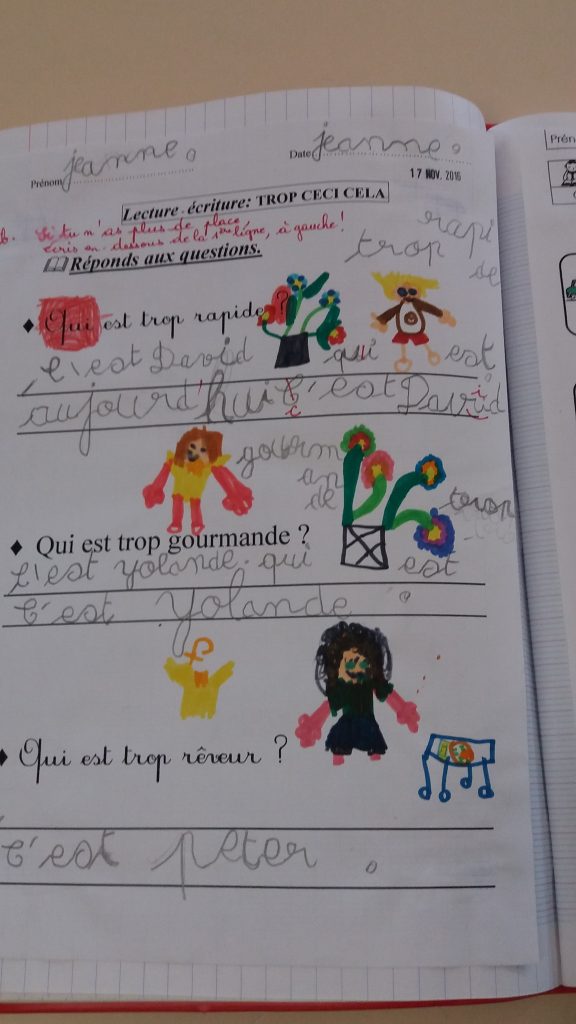 Prénom jeanne.
Date jeanne.
17 NOV. 2016
Lecture-écriture: TROP CECI CELA
Si tu n'as plus de place,
écris en-dessous de la 1ère ligne, à gauche!
Réponds aux questions.
trop rapi
de
♦ Qui est trop rapide ?
c'est David qui est
aujourd'hui c'est David
gourm
an
de
trop
♦ Qui est trop gourmande ?
c'est yolande. qui est
c'est yolande.
♦ Qui est trop rêveur ?
c'est peter.
Prén